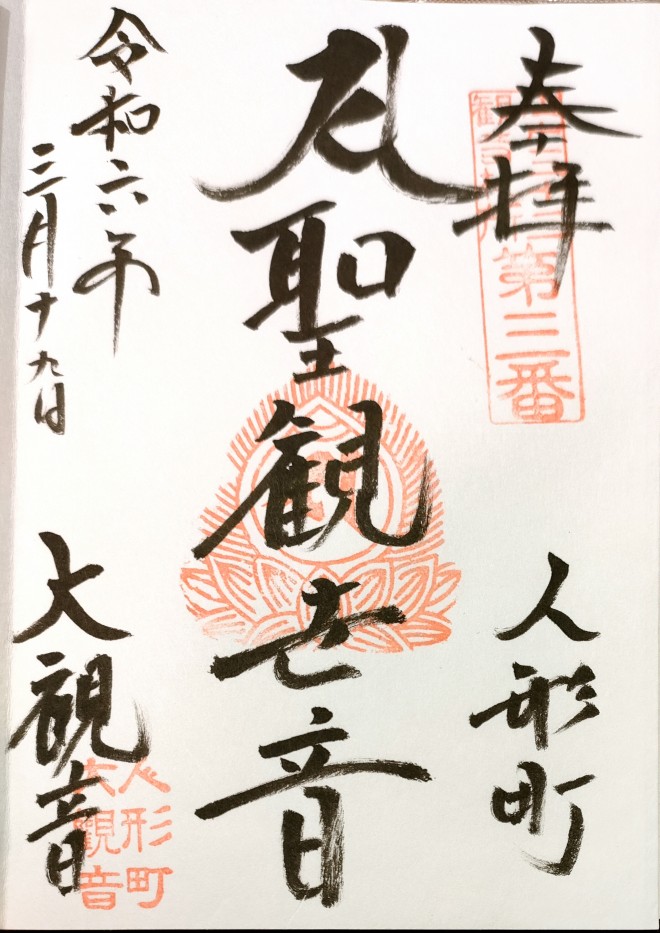 奉拝
第三番
人形町
聖観世音
令和六年
三月十九日
大観音
人形町
大観音